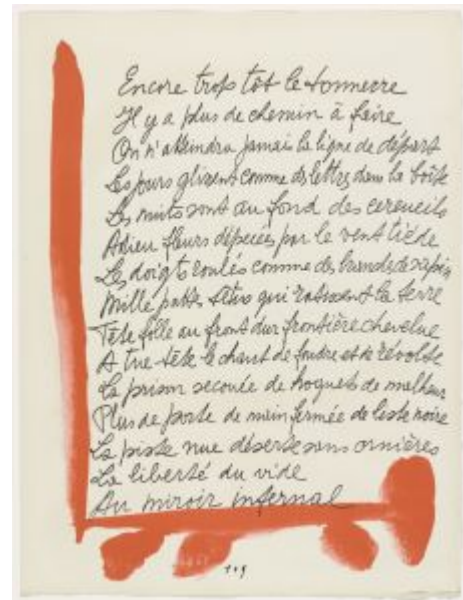 Encore trop tôt le tonnerre
Il y a plus de chemin à faire
On n'atteindra jamais la ligne de départ
Les jours glissent comme des lettres dans la boîte
Les nuits sont au fond des cercueils
Adieu fleurs dépecées par le vent tiède
Les doigts roulés comme des de sapin
Mille pattes qui la terre
Tête folle au front dur frontière chevelue
A tue-tête le chant de foudre et de révolte
La prison secouée de hoquets de malheur
Plus de porte de main fermée de noire
La piste nue déserte sans ornières
La liberté du vide
Au miroir infernal